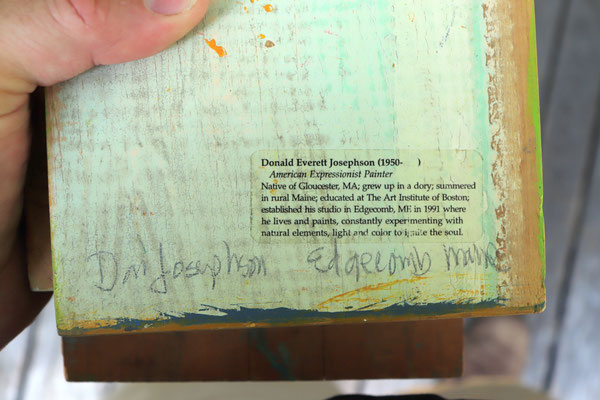 Donald Everett Josephson (1950-    )
American Expressionist Painter
Native of Gloucester, MA; grew up in a dory; summered
in rural Maine; educated at The Art Institute of Boston;
established his studio in Edgecomb, ME in 1991 where
he lives and paints, constantly experimenting with
natural elements, light and color to ignite the soul.
Don Josephson Edgecomb Maine